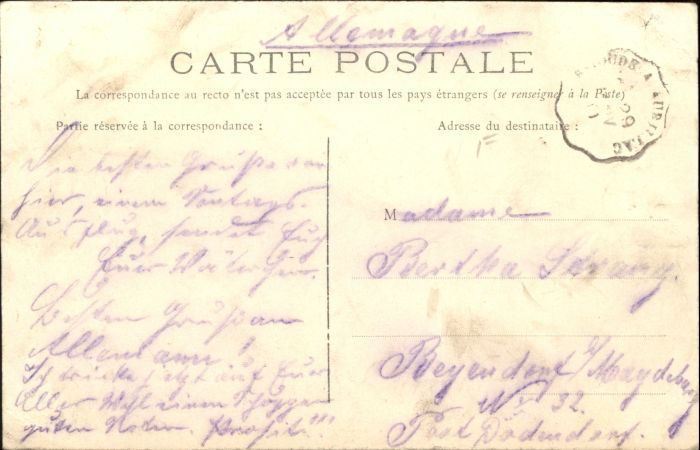 Allemagne
CARTE POSTALE
La correspondance au recto n'est pas acceptée par tous les pays étrangers (se renseigner à la Poste)
Partie réservée à la correspondance :
Adresse du destinataire :
AURILLAC
29
Die besten Grüße von
hier, einem Sontags-
Ausflug, sendet Euch
Euer
Besten Gruß an
Alle
Ich trinke jetzt auf Euer
Aller Wohl einen Schoppen
guten Prosit!!!
Madame
Bertha
Beyendorf b/Magdeburg
No 32.
Post Dodendorf.